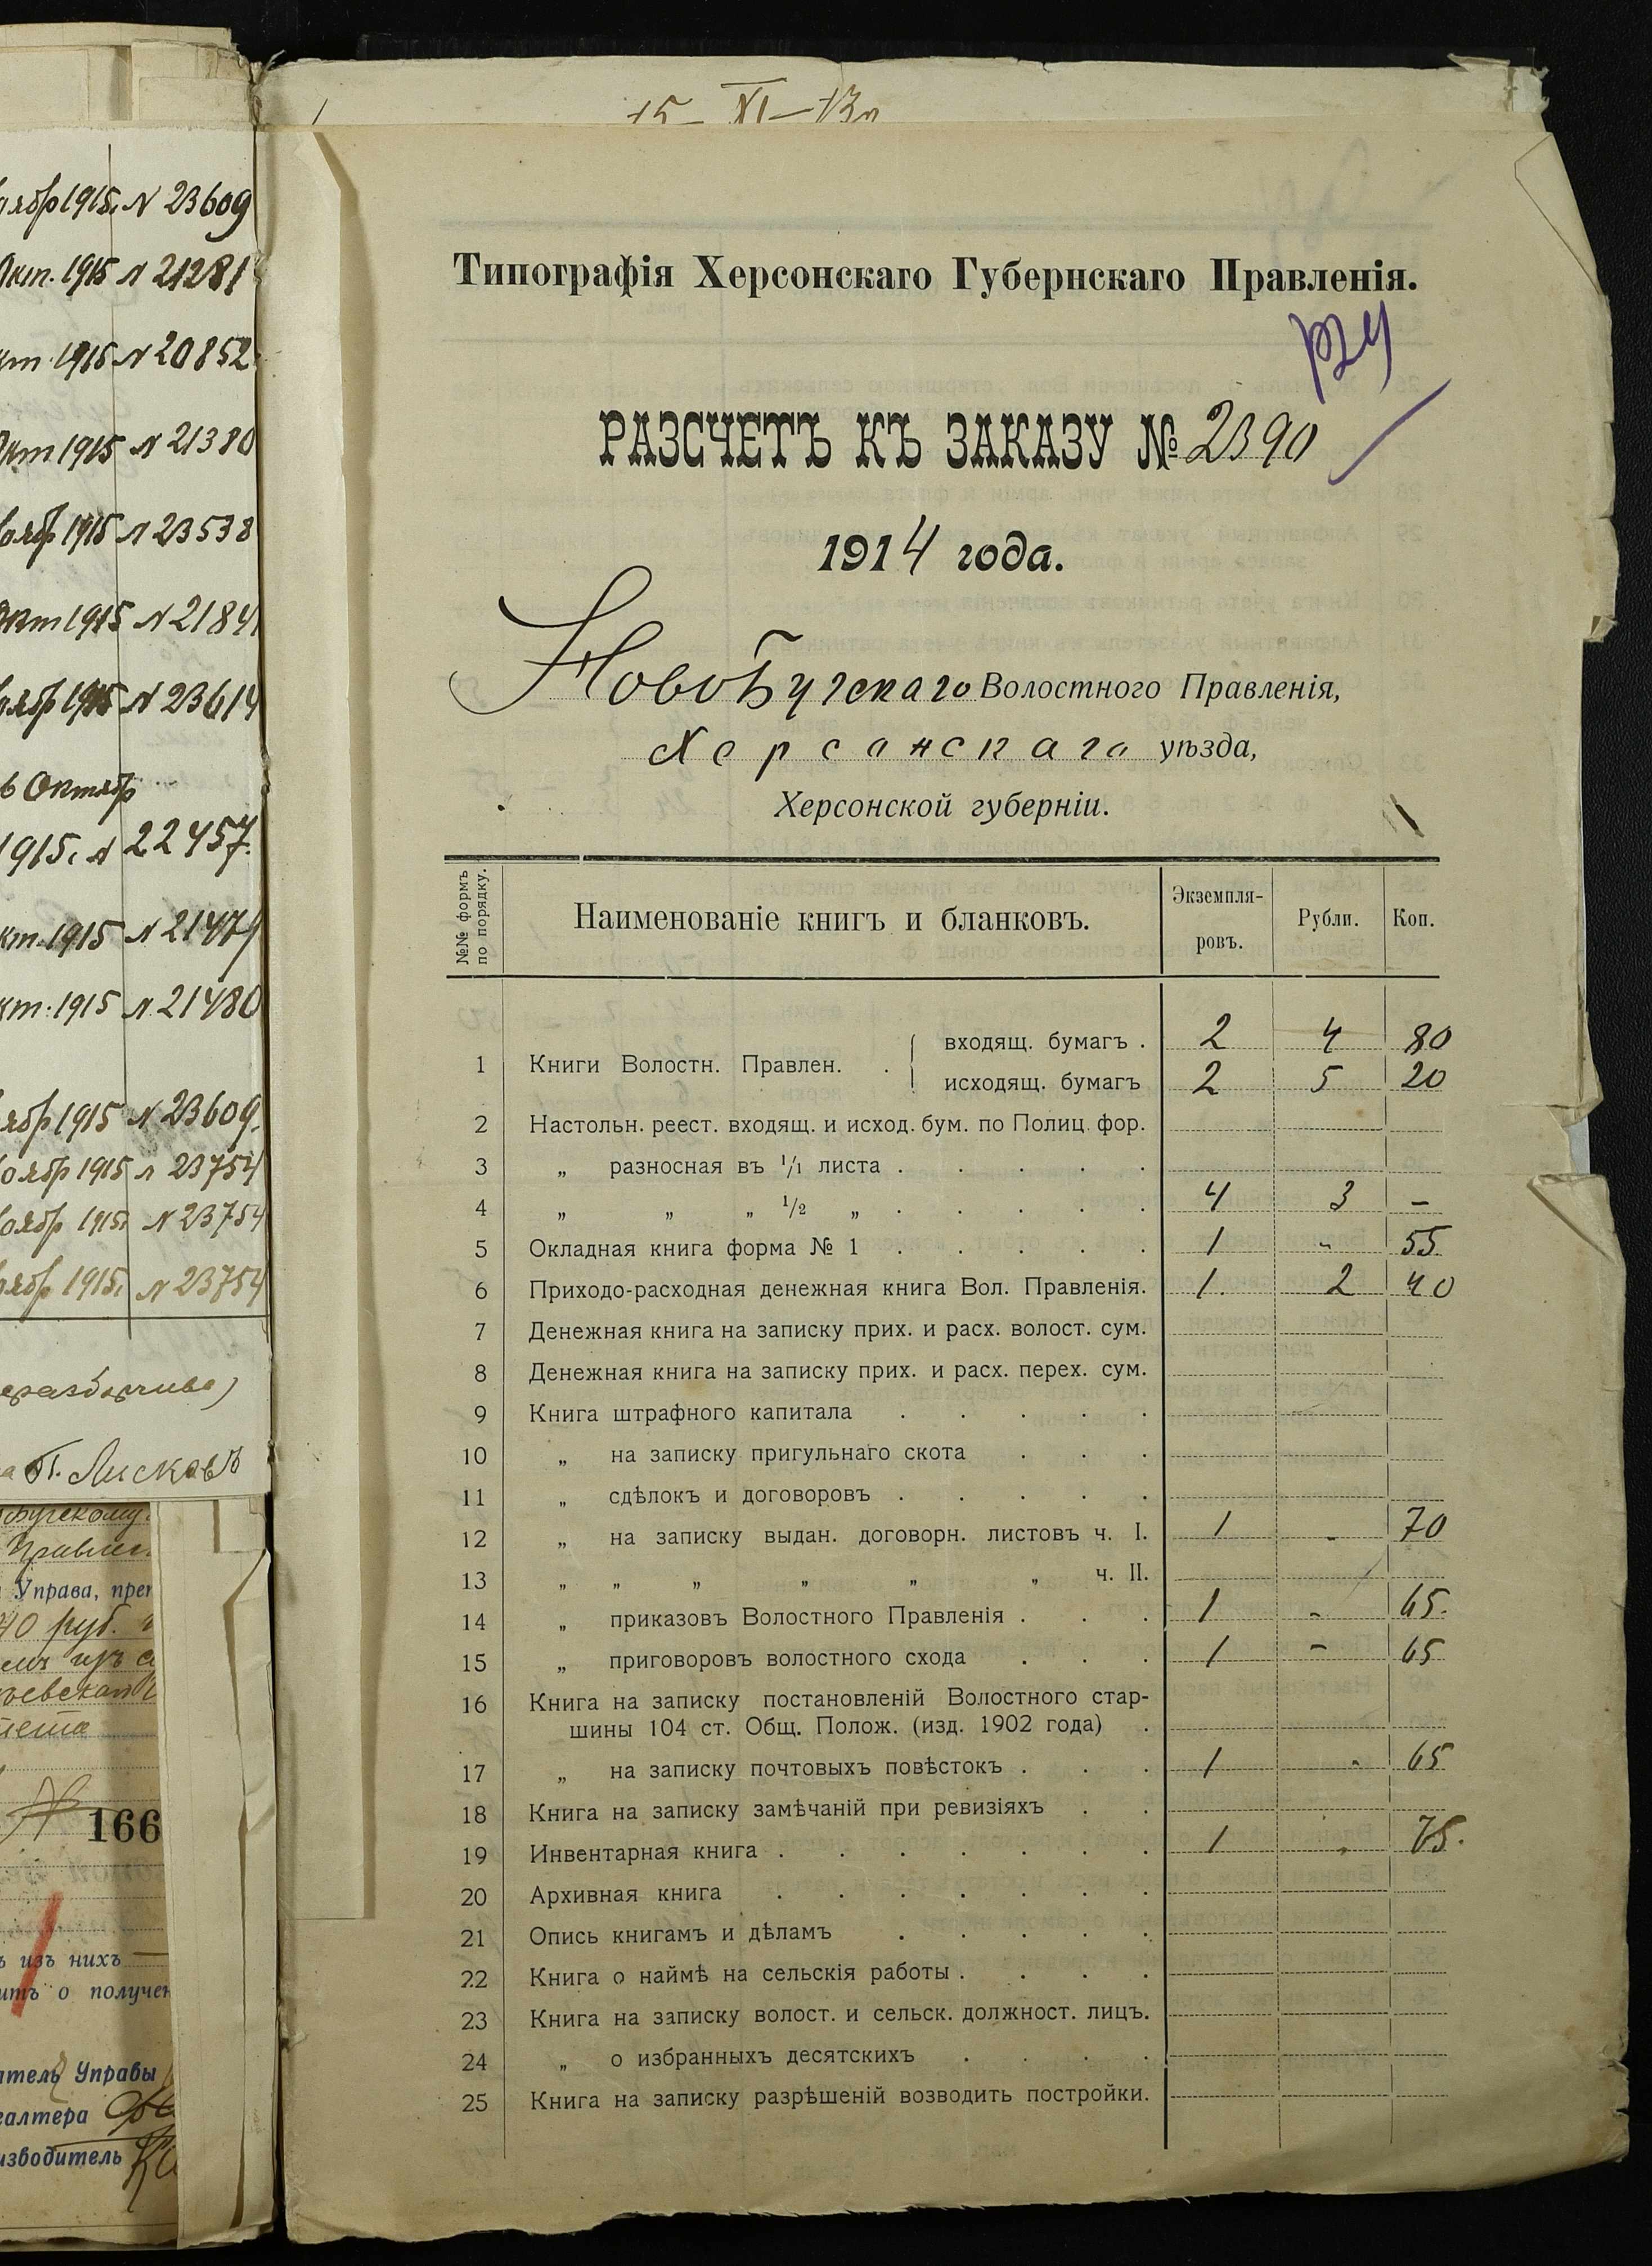 15 XI
оябр 1915 г N 23609
Окт. 1915 N 21281
кт 1915 N 20852
Окт 1915 N 21380
оябр 1915 N 23538
Окт 1915 N 2184
оябр 1915 N 23614
Октябр
1915 г N 22457.
кт. 1915 N 21474
кт. 1915 N 21480
оябр 1915 N 23609.
оябр 1915 N 23754
оябр 1915 N 23754
оябр 1915 г N 23754
еразборчиво)
П. Лисковъ
Бугскому
Правлен.
Управа, преп
40 руб.
166
изъ нихъ
ить о получен
атель Управы
галтера
изводитель
Типографія Херсонскаго Губернскаго Правленія.
РАЗСЧЕТЪ КЪ ЗАКАЗУ № 2390
1914 года.
НовоБугскаго Волостного Правленія,
Херсонскаго уѣзда,
Херсонской губерніи.
№№ формъ по порядку. Наименованіе книгъ и бланковъ. Экземпля-ровъ. Рубли. Коп.
входящ. бумагъ . 2 4 80
1 Книги Волостн. Правлен. .
исходящ. бумагъ 2 5 20
2 Настольн. реест. входящ. и исход. бум. по Полиц. фор.
3 „ разносная въ 1/1 листа . . . . .
4 „ „ „ 1/2 „ . . . . . 4 3 –
5 Окладная книга форма № 1 . . . . . 1 „ 55
6 Приходо-расходная денежная книга Вол. Правленія. 1. 2 40
7 Денежная книга на записку прих. и расх. волост. сум.
8 Денежная книга на записку прих. и расх. перех. сум.
9 Книга штрафного капитала . . . . .
10 „ на записку пригульнаго скота . . .
11 „ сдѣлокъ и договоровъ . . . . .
12 „ на записку выдан. договорн. листовъ ч. I. 1 - 70
13 „ „ „ „ „ „ ч. II.
14 „ приказовъ Волостного Правленія . . . 1 - 65.
15 „ приговоровъ волостного схода . . . 1 - 65
16 Книга на записку постановленій Волостного стар-
шины 104 ст. Общ. Полож. (изд. 1902 года) .
17 „ на записку почтовыхъ повѣстокъ . . . 1 - 65
18 Книга на записку замѣчаній при ревизіяхъ . .
19 Инвентарная книга . . . . . . . 1 „ 75.
20 Архивная книга . . . . . . .
21 Опись книгамъ и дѣламъ . . . . .
22 Книга о наймѣ на сельскія работы . . . .
23 Книга на записку волост. и сельск. должност. лицъ.
24 „ о избранныхъ десятскихъ . . . .
25 Книга на записку разрѣшеній возводить постройки.